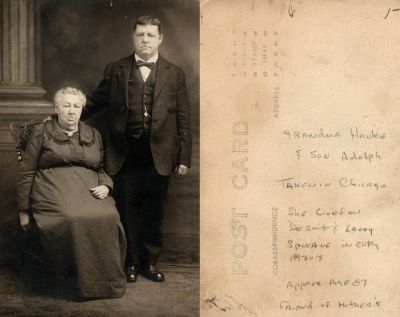 PLACE
STAMP
HERE
POST CARD
ADDRESS
CORRESPONDENCE
GRANDMA Hankie
& SON Adolph
TAKEN IN Chicago
She Lived on
Desmit/
Spokane in early
1930's
Approx Age 87
Friend of Mother's